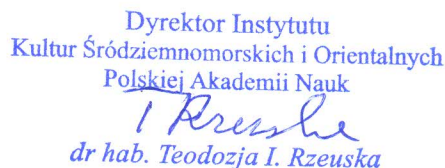 Dyrektor Instytutu
Kultur Śródziemnomorskich i Orientalnych
Polskiej Akademii Nauk
T Rzeuska
dr hab. Teodozja I. Rzeuska